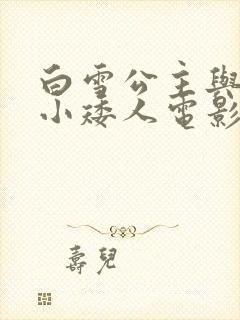 白雪公主與
小矮人電影
壽兒